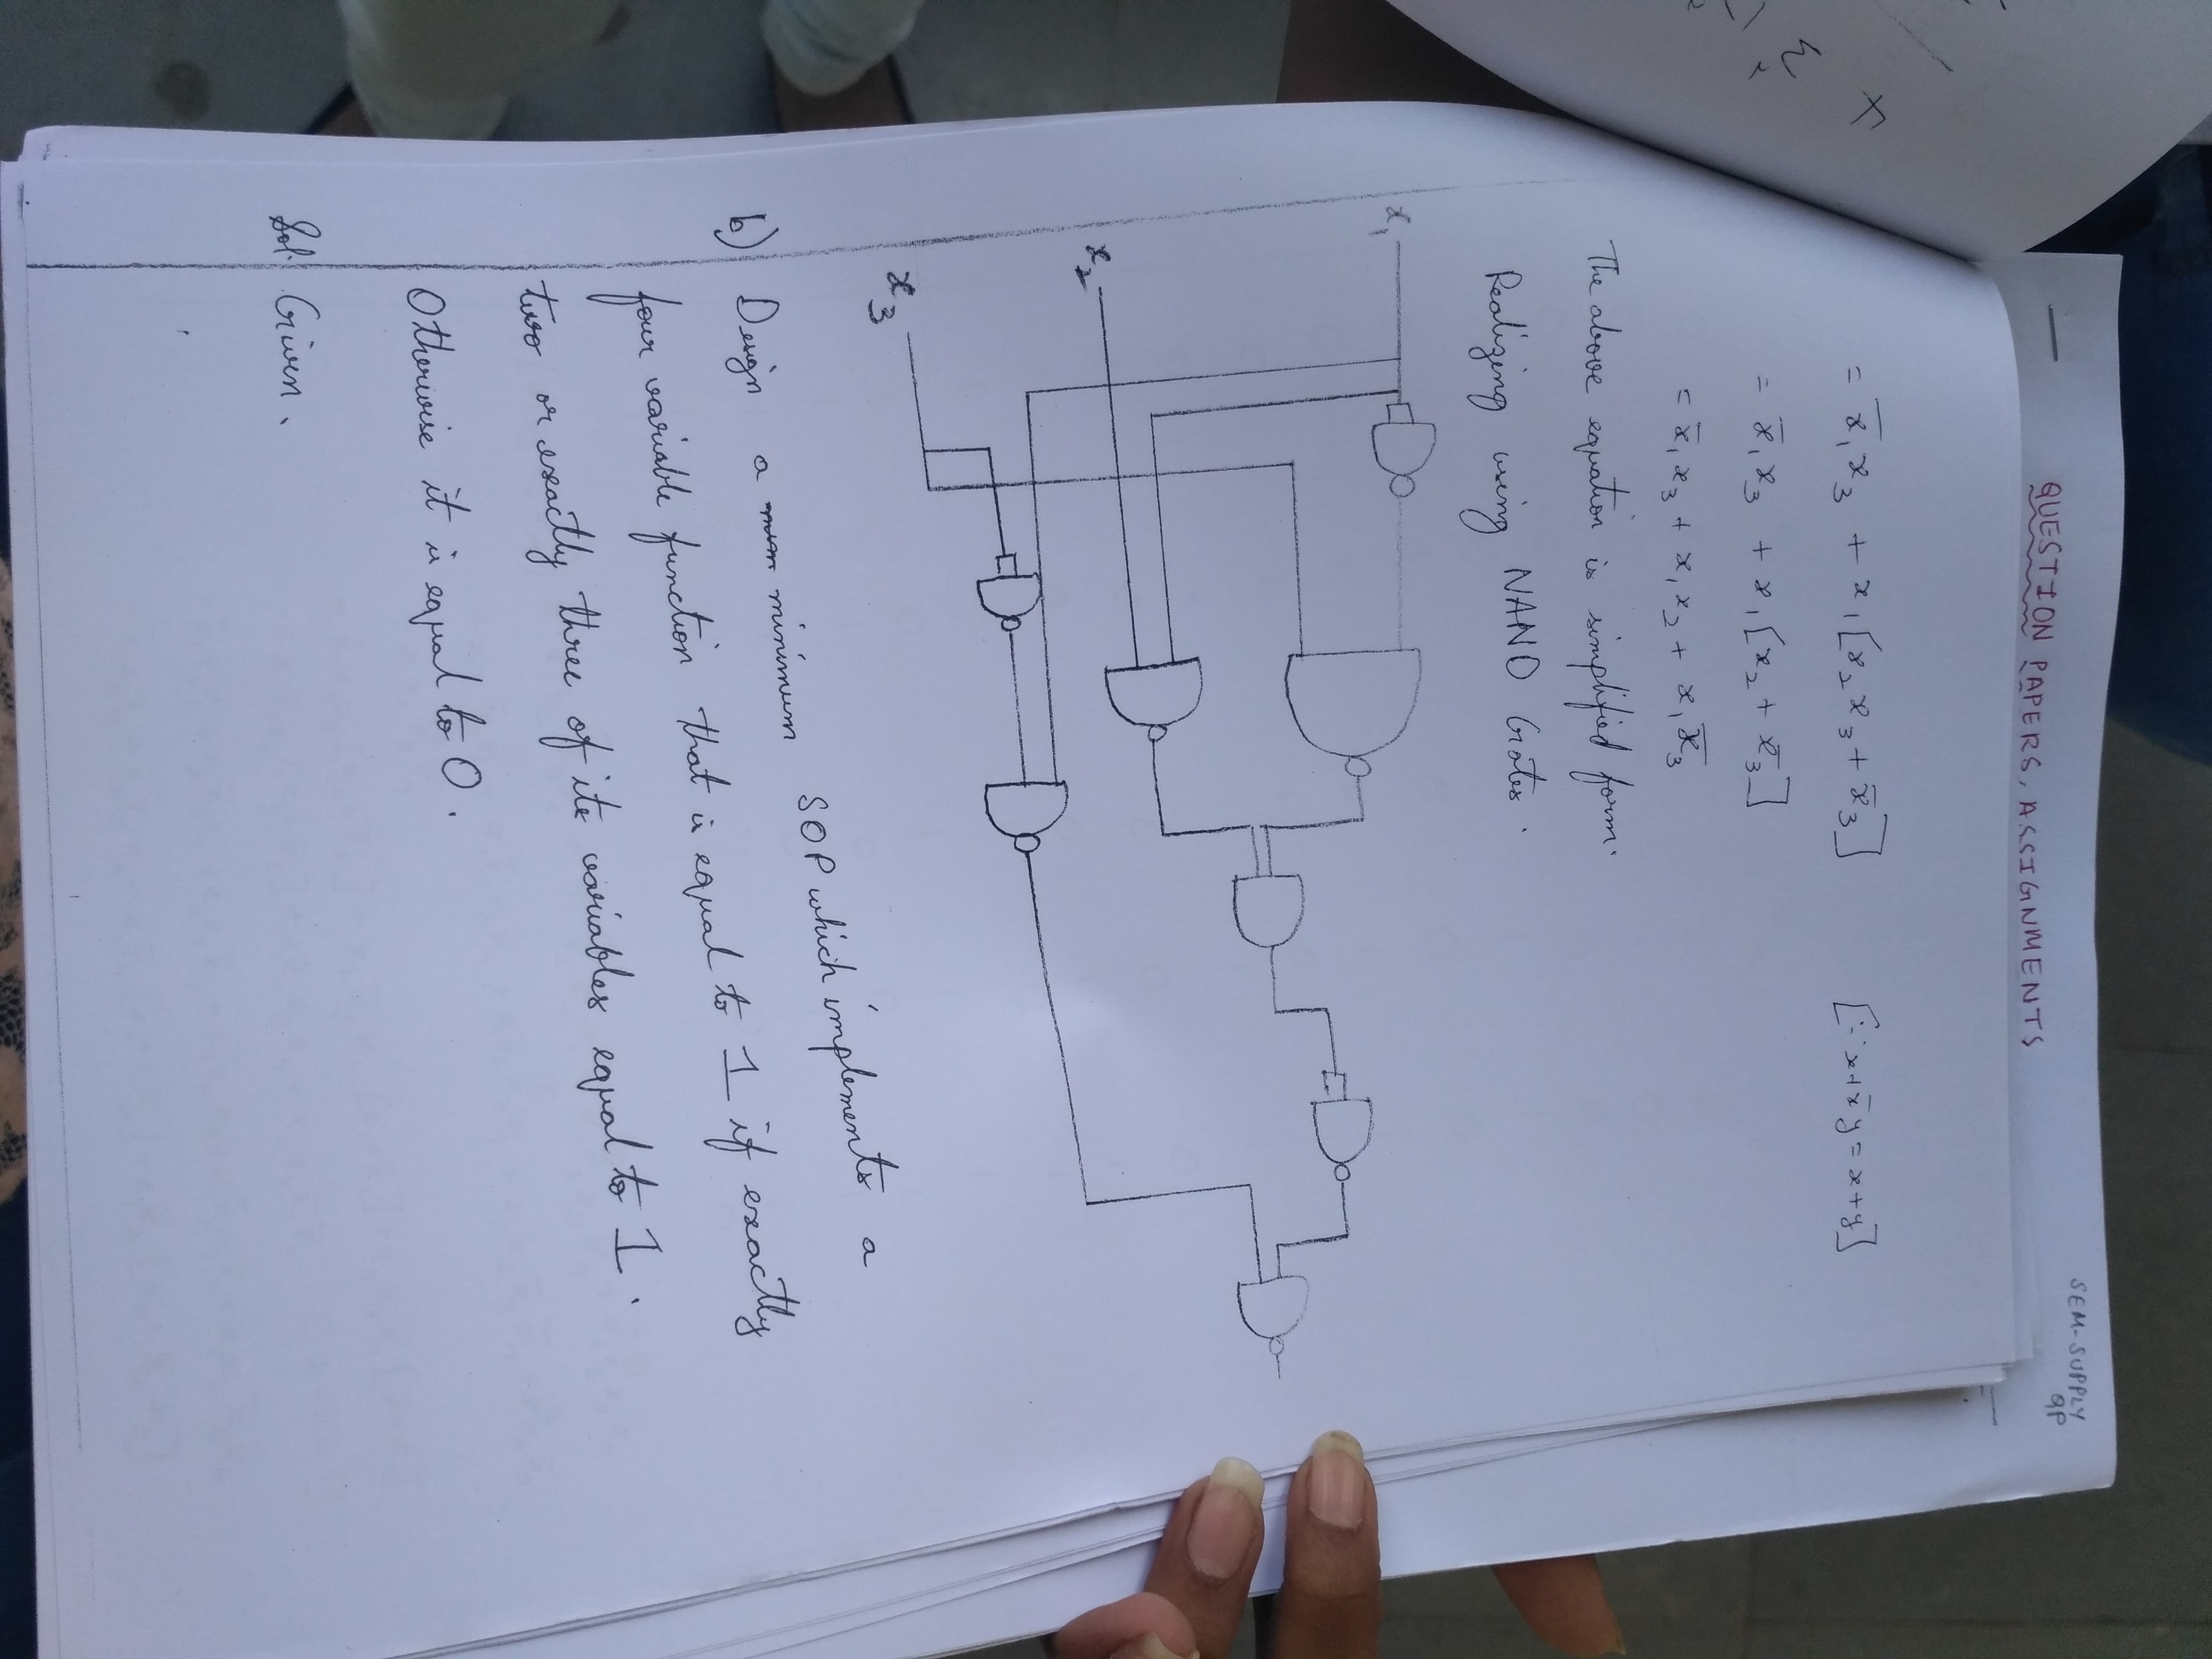 QUESTION PAPERS, ASSIGNMENTS
SEM-SUPPLY
QP
= x̄₁x₃ + x₁[x₂x₃ + x̄₃] [∵ x+x̄y = x+y]
= x̄₁x₃ + x₁[x₂ + x̄₃]
= x̄₁x₃ + x₁x₂ + x₁x̄₃
The above equation is simplified form.
Realizing using NAND Gates.
x₁
x₂
x₃
b) Design a minimum SOP which implements a
four variable function that is equal to 1 if exactly
two or exactly three of its variables equal to 1.
Otherwise it is equal to 0.
Sol: Given.